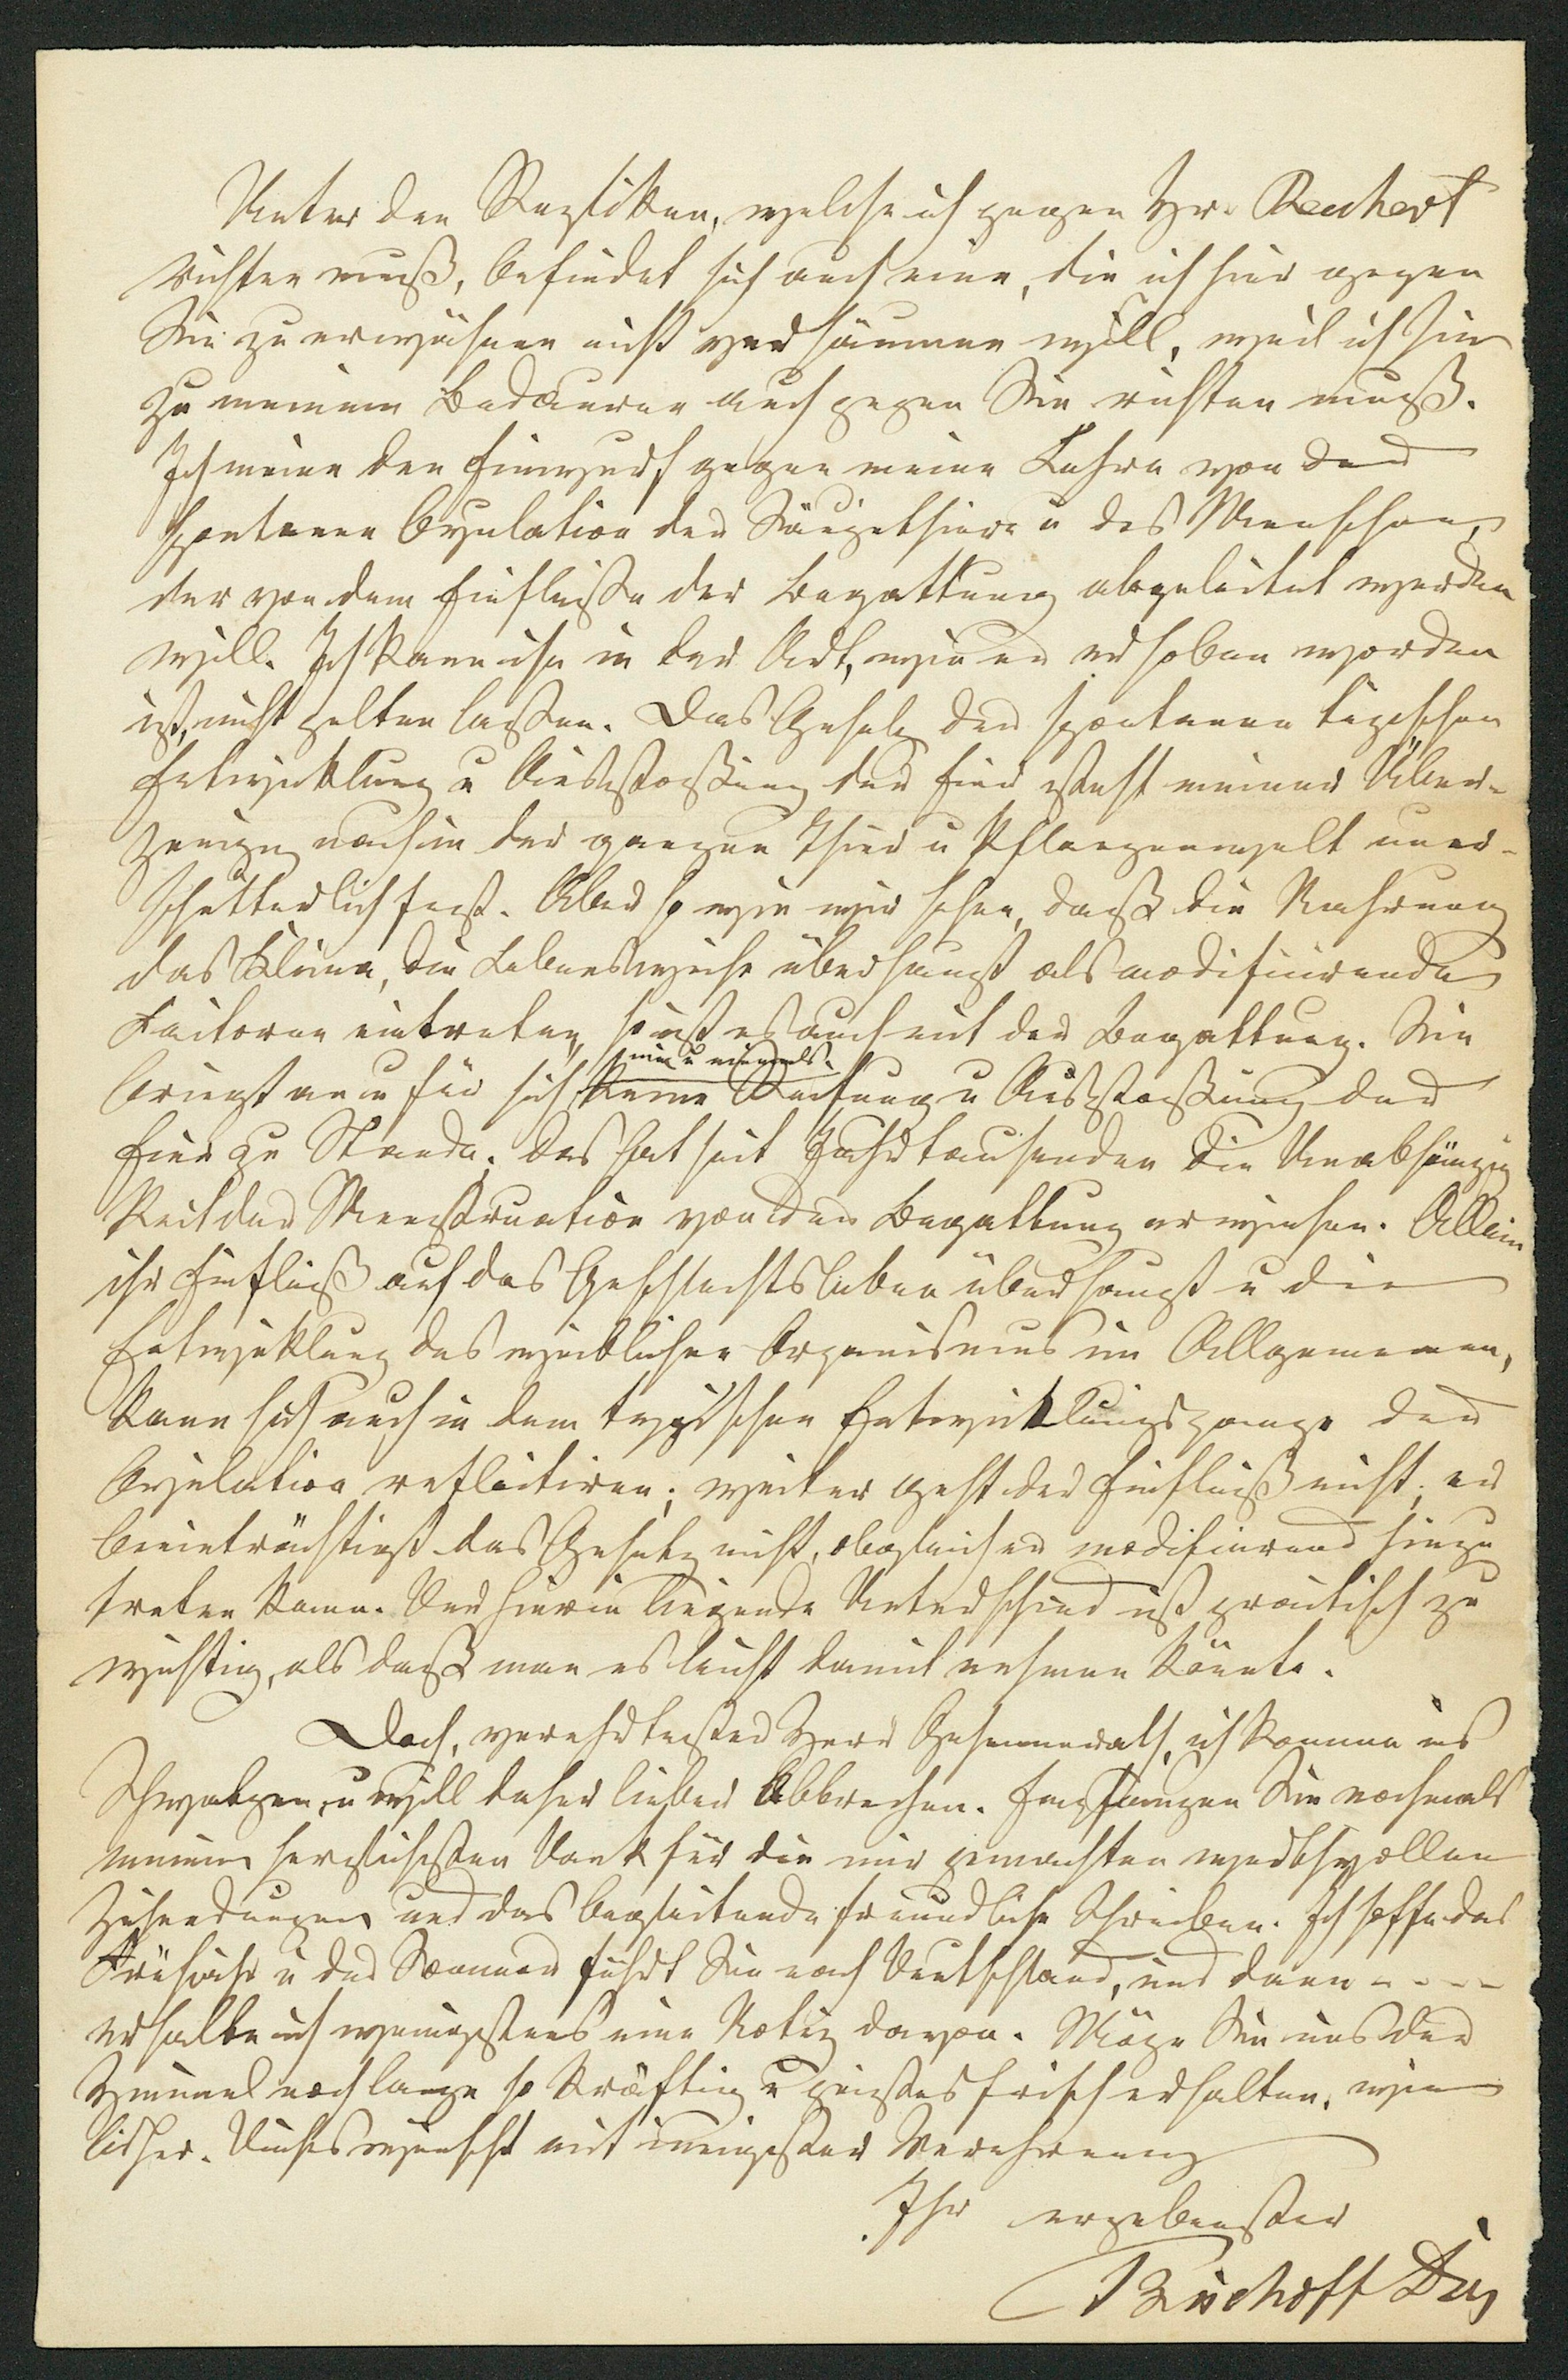 Unter den Repliken, welche ich gegen Hr. Reichert
richten muß, befindet sich auch eine, die ich hier gegen
Sie zu erwähnen nicht versäumen will, weil ich sie
zu meinem Bedauern auch gegen Sie richten muß.
Ich meine den Einwurf gegen meine Lehre von der
spontanen Ovulation der Säugethiere u des Menschen,
der von dem Einfluße der Begattung abgeleitet werden
will. Ich kann ihn in der Art, wie er erhoben worden
ist, nicht gelten laßen. Das Gesetz der spontanen typischen
Entwicklung u Ausstoßung der Eier steht meiner Über-
zeugung nach in der ganzen Thier u Pflanzenwelt uner-
schütterlich fest. Aber so wie wir sehen, daß die Nahrung
das Klima, die Lebensweise überhaupt als modificirende
Factoren eintreten, so ist es auch mit der Begattung. Sie
nie u niemals.
bringt an u für sich keine Reifung u Ausstoßung der
Eier zu Stande. Das hat seit Jahrtausenden die Unabhängig
keit der Menstruation von der Begattung erwiesen. Allein
ihr Einfluß auf das Geschlechtsleben überhaupt u die
Entwicklung des weiblichen Organismus im Allgemeinen,
kann sich auch in dem typischen Entwicklungsgange der
Ovulation reflectiren; weiter geht der Einfluß nicht; er
beeinträchtigt das Gesetz nicht, obgleich er modificirend hinzu
treten kann. Der hierin liegende Unterschied ist practisch zu
wichtig, als daß man es leicht damit nehmen könnte.
Doch, verehrtester Herr Geheimerath, ich komme ins
Schwatzen, u will daher lieber Abbrechen. Empfangen Sie nochmals
meinen herzlichsten Dank für die mir gemachten werthvollen
Zusendungen und das begleitende freundliche Schreiben. Ich hoffe das
Frühjahr u der Sommer führt Sie nach Deutschland, und dann - - - -
erhalte ich wenigstens eine Notiz davon. Möge Sie uns der
Himmel noch lange so kräftig u geistesfrisch erhalten, wie
bisher. Dieses wünscht mit innigster Verehrung
Ihr ergebenster
Bischoff